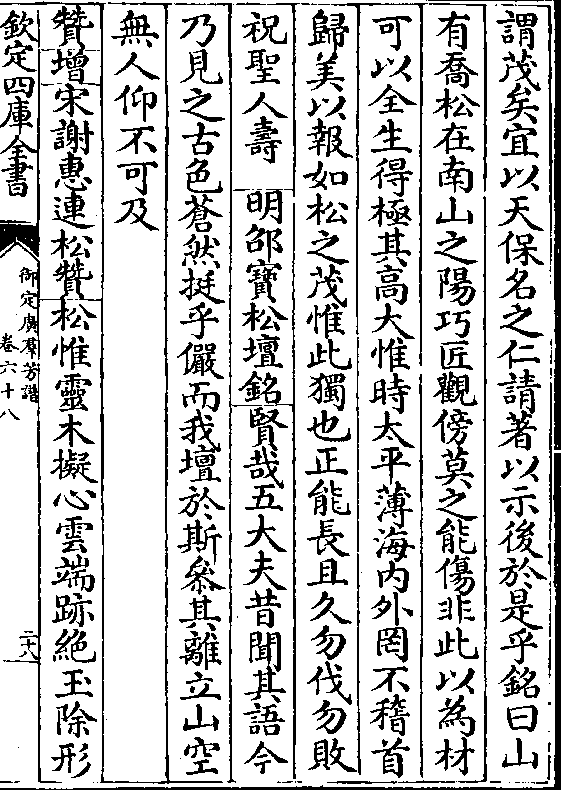 謂茂矣宜以天保名之仁請著以示後於是乎銘曰山
有喬松在南山之陽巧匠觀傍莫之能傷非此以為材
可以全生得極其高大惟時太平薄海內外罔不稽首
歸美以報如松之茂惟此獨也正能長且久勿伐勿敗
祝聖人壽 明邵寶松壇銘賢哉五大夫昔聞其語今
乃見之古色蒼然挺乎儼而我壇於斯叅其離立山空
無人仰不可及
贊增宋謝惠連松贊松惟靈木擬心雲端跡絶玉除形
欽定四庫全書
御定廣羣芳譜
卷六十八
二十八